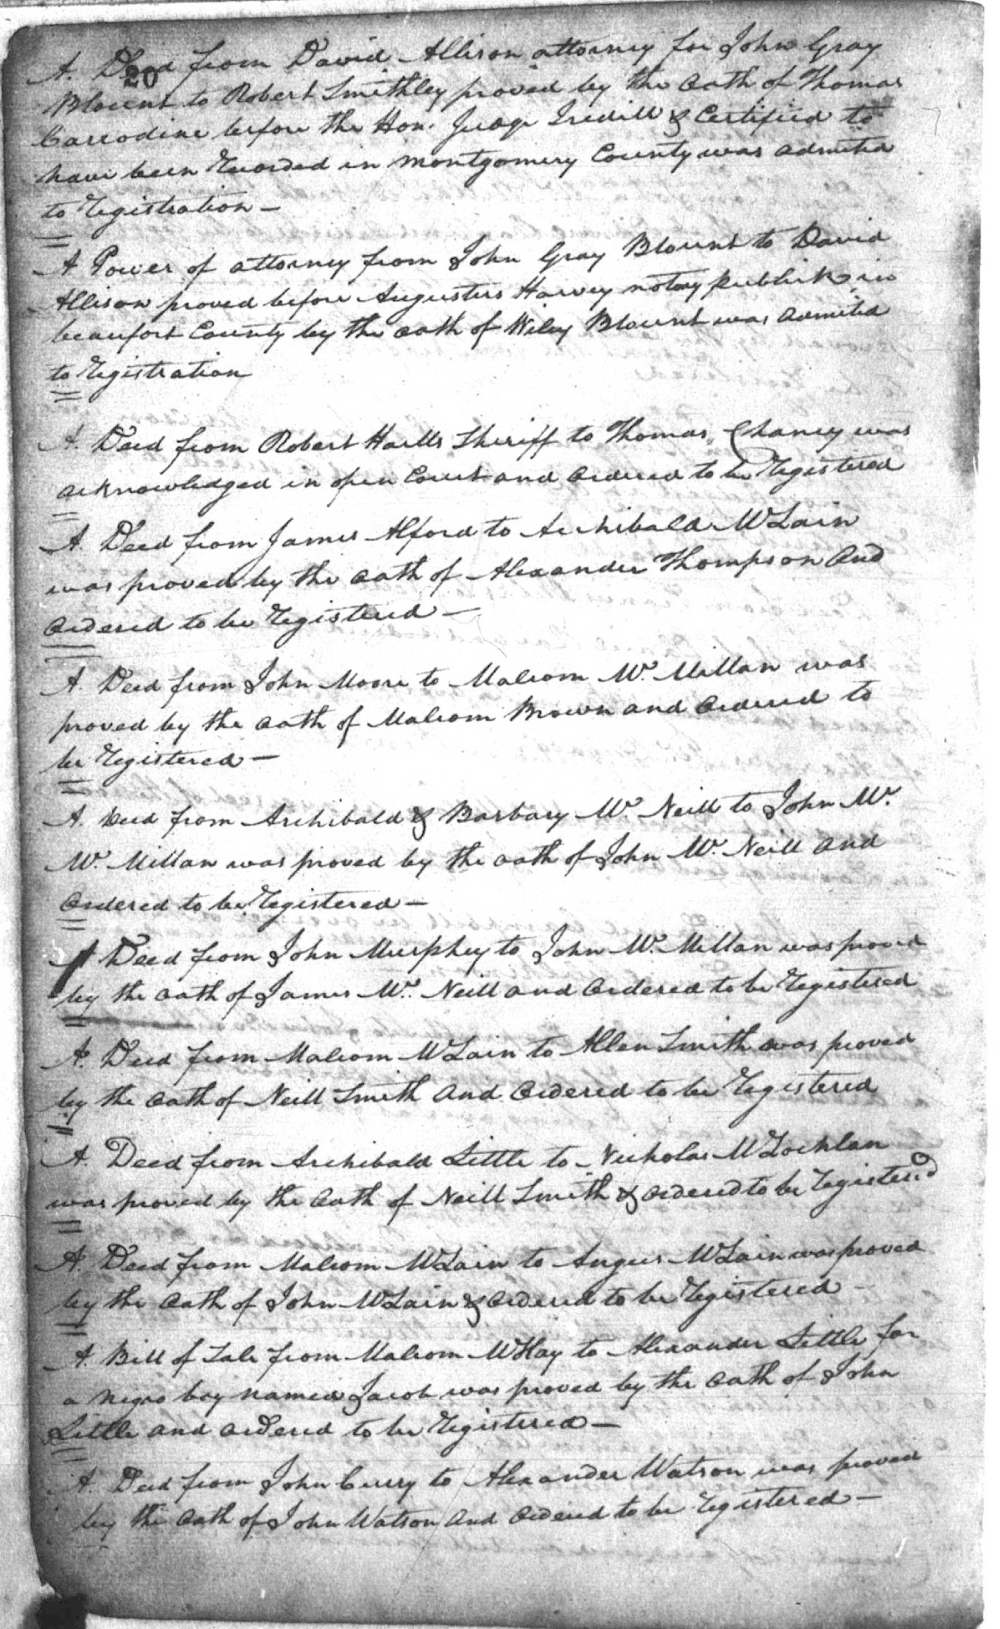 20
A. Deed from David Allison attorney for John Gray
Blount to Robert Smithley proved by the Oath of Thomas
Carrodine before the Hon. Judge Iredill & Certified to
have been Recorded in Montgomery County was admitted
to Registration —
A Power of attorney from John Gray Blount to David
Allison proved before Augusters Harvey notary publick in
beaufort County by the Oath of Wiley Blount was admitted
to Registration
A. Deed from Robert Harlls Sheriff to Thomas Chancy was
acknowledged in open Court and Ordered to be Registered
A. Deed from James Alford to Archibald McLain
was proved by the Oath of Alexander Thompson And
Ordered to be Registered —
A. Deed from John Moore to Malcom Mc. Millan was
proved by the Oath of Malcom Brown and Ordered to
be Registered —
A. Deed from Archibald & Barbary Mc. Neill to John Mc.
Mc. Millan was proved by the Oath of John Mc. Neill and
Ordered to be Registered —
A Deed from John Murphey to John Mc. Millan was proved
by the Oath of James Mc. Neill and Ordered to be Registered
A. Deed from Malcom McLain to Allen Smith was proved
by the Oath of Neill Smith And Ordered to be Registered
A. Deed from Archibald Little to Nicholas McLochlan
was proved by the Oath of Neill Smith & Ordered to be Registered
A. Deed from Malcom McLain to Angus McLain was proved
by the Oath of John McLain & Ordered to be Registered —
A. Bill of Sale from Malcom McKay to Alexander Little for
a Negro boy named Jacob was proved by the Oath of John
Little and Ordered to be Registered —
A. Deed from John Curry to Alexander Watson was proved
by the Oath of John Watson And Ordered to be Registered —